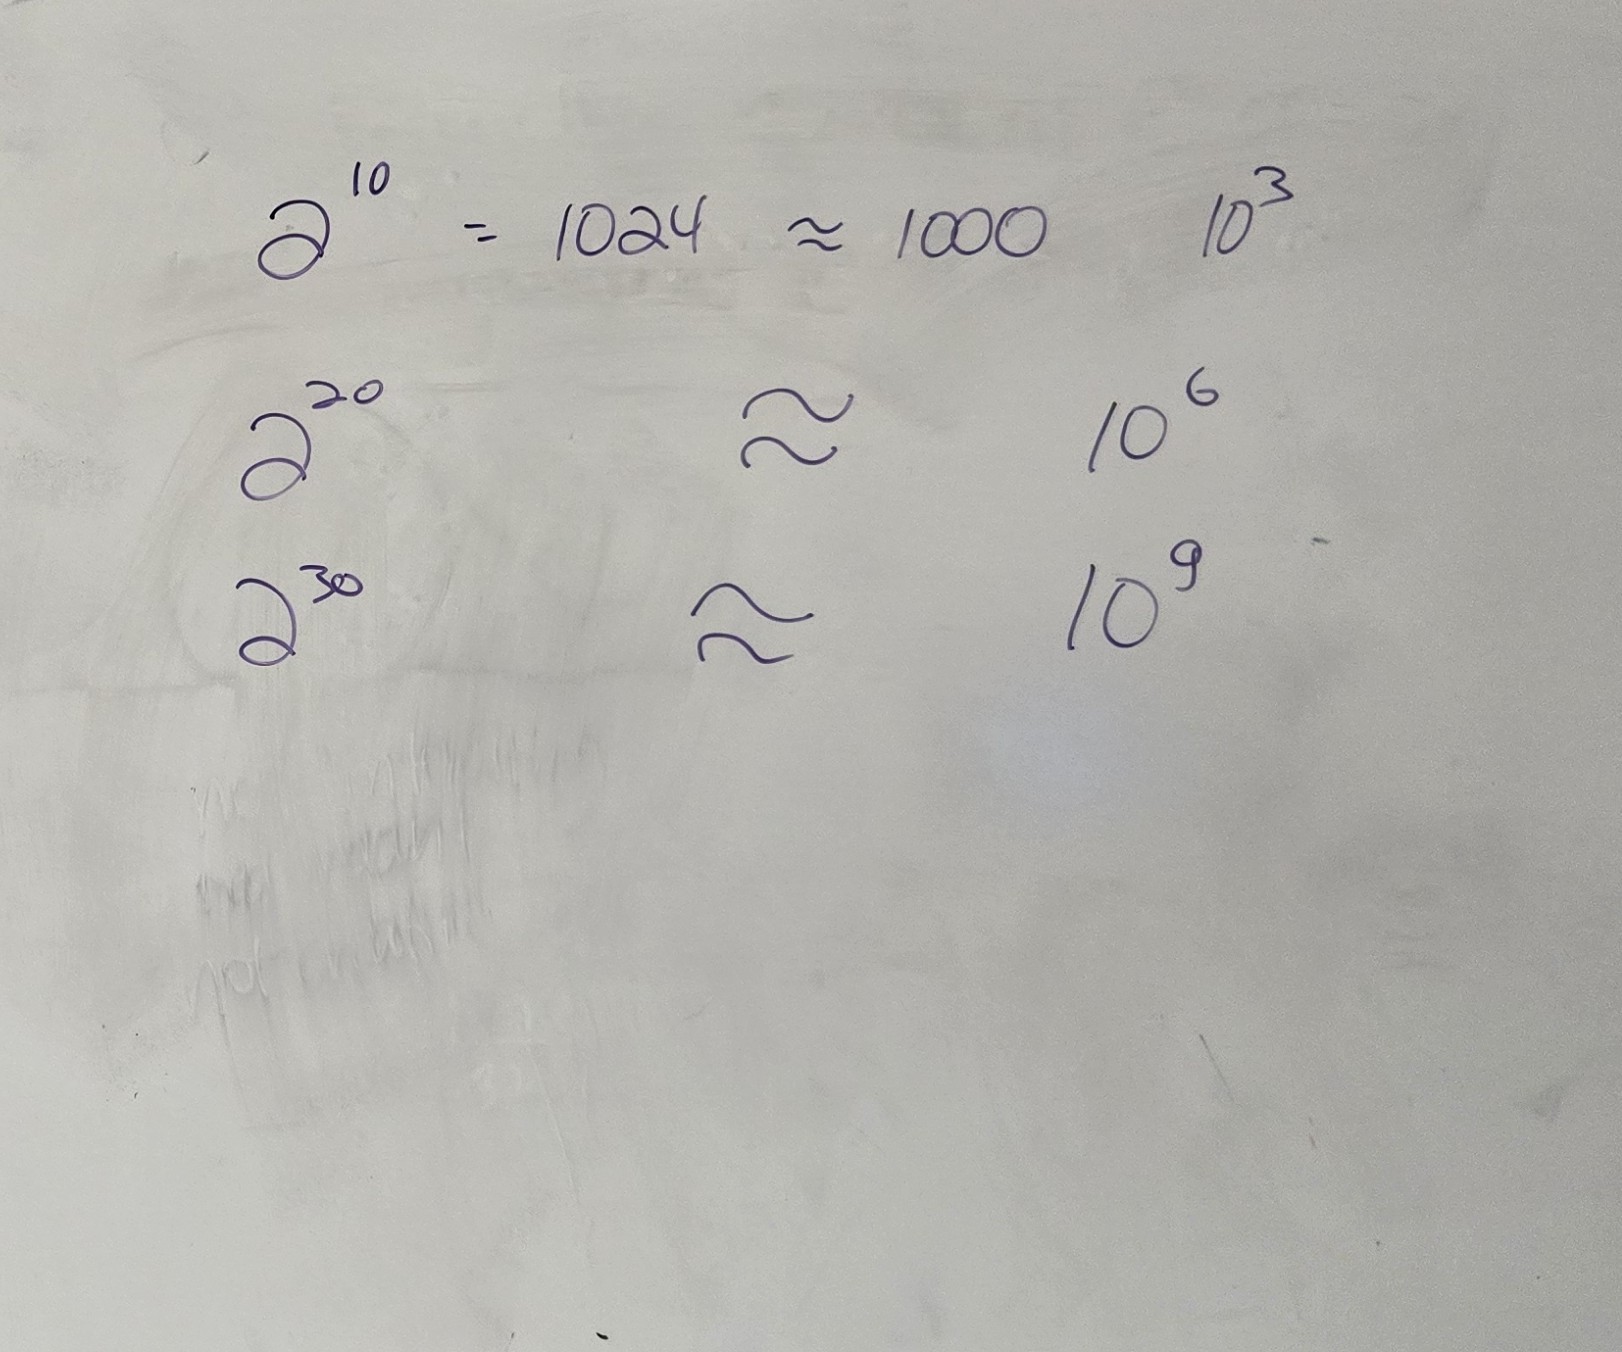 2¹⁰ = 1024 ≈ 1000 10³
2²⁰ ≈ 10⁶
2³⁰ ≈ 10⁹